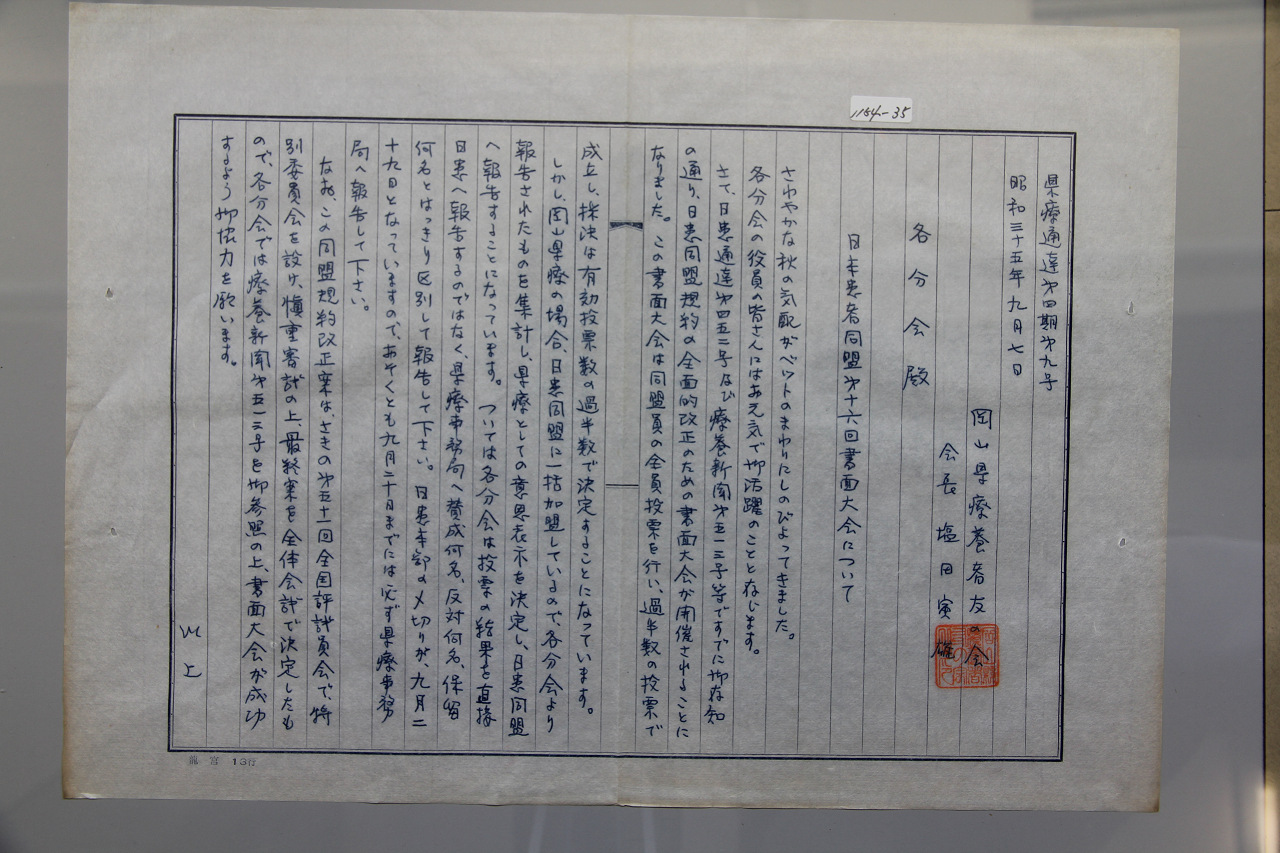 1154-35
県療通達第四期第九号
昭和三十五年九月七日
岡山県療養者友の会
会長 塩田寅雄
各分会殿
日本患者同盟第十六回書面大会について
さわやかな秋の気配がベットのまわりにしのびよってきました。
各分会の役員の皆さんにはお元気で御活躍のことと存じます。
さて、日患通達第四五二号及び療養新聞第五一三号等ですでに御存知
の通り、日患同盟規約の全面的改正のための書面大会が開催されることに
なりました。この書面大会は同盟員の全員投票を行い、過半数の投票で
成立し、採決は有効投票数の過半数で決定することになっています。
しかし、岡山県療の場合、日患同盟に一括加盟しているので、各分会より
報告されたものを集計し、県療としての意思表示を決定し、日患同盟
へ報告することになっています。ついては各分会は投票の結果を直接
日患へ報告するのではなく、県療事務局へ賛成何名、反対何名、保留
何名とはっきり区別して報告して下さい。日患本部の〆切りが、九月二
十九日となっていますので、おそくとも九月二十日までには必ず県療事務
局へ報告して下さい。
なお、この同盟規約改正案は、さきの第五十一回全国評議員会で、特
別委員会を設け、慎重審議の上、最終案を全体会議で決定したも
ので、各分会では療養新聞第五一三号を御参照の上、書面大会が成功
するよう御協力を願います。
以上
龍宮 13行